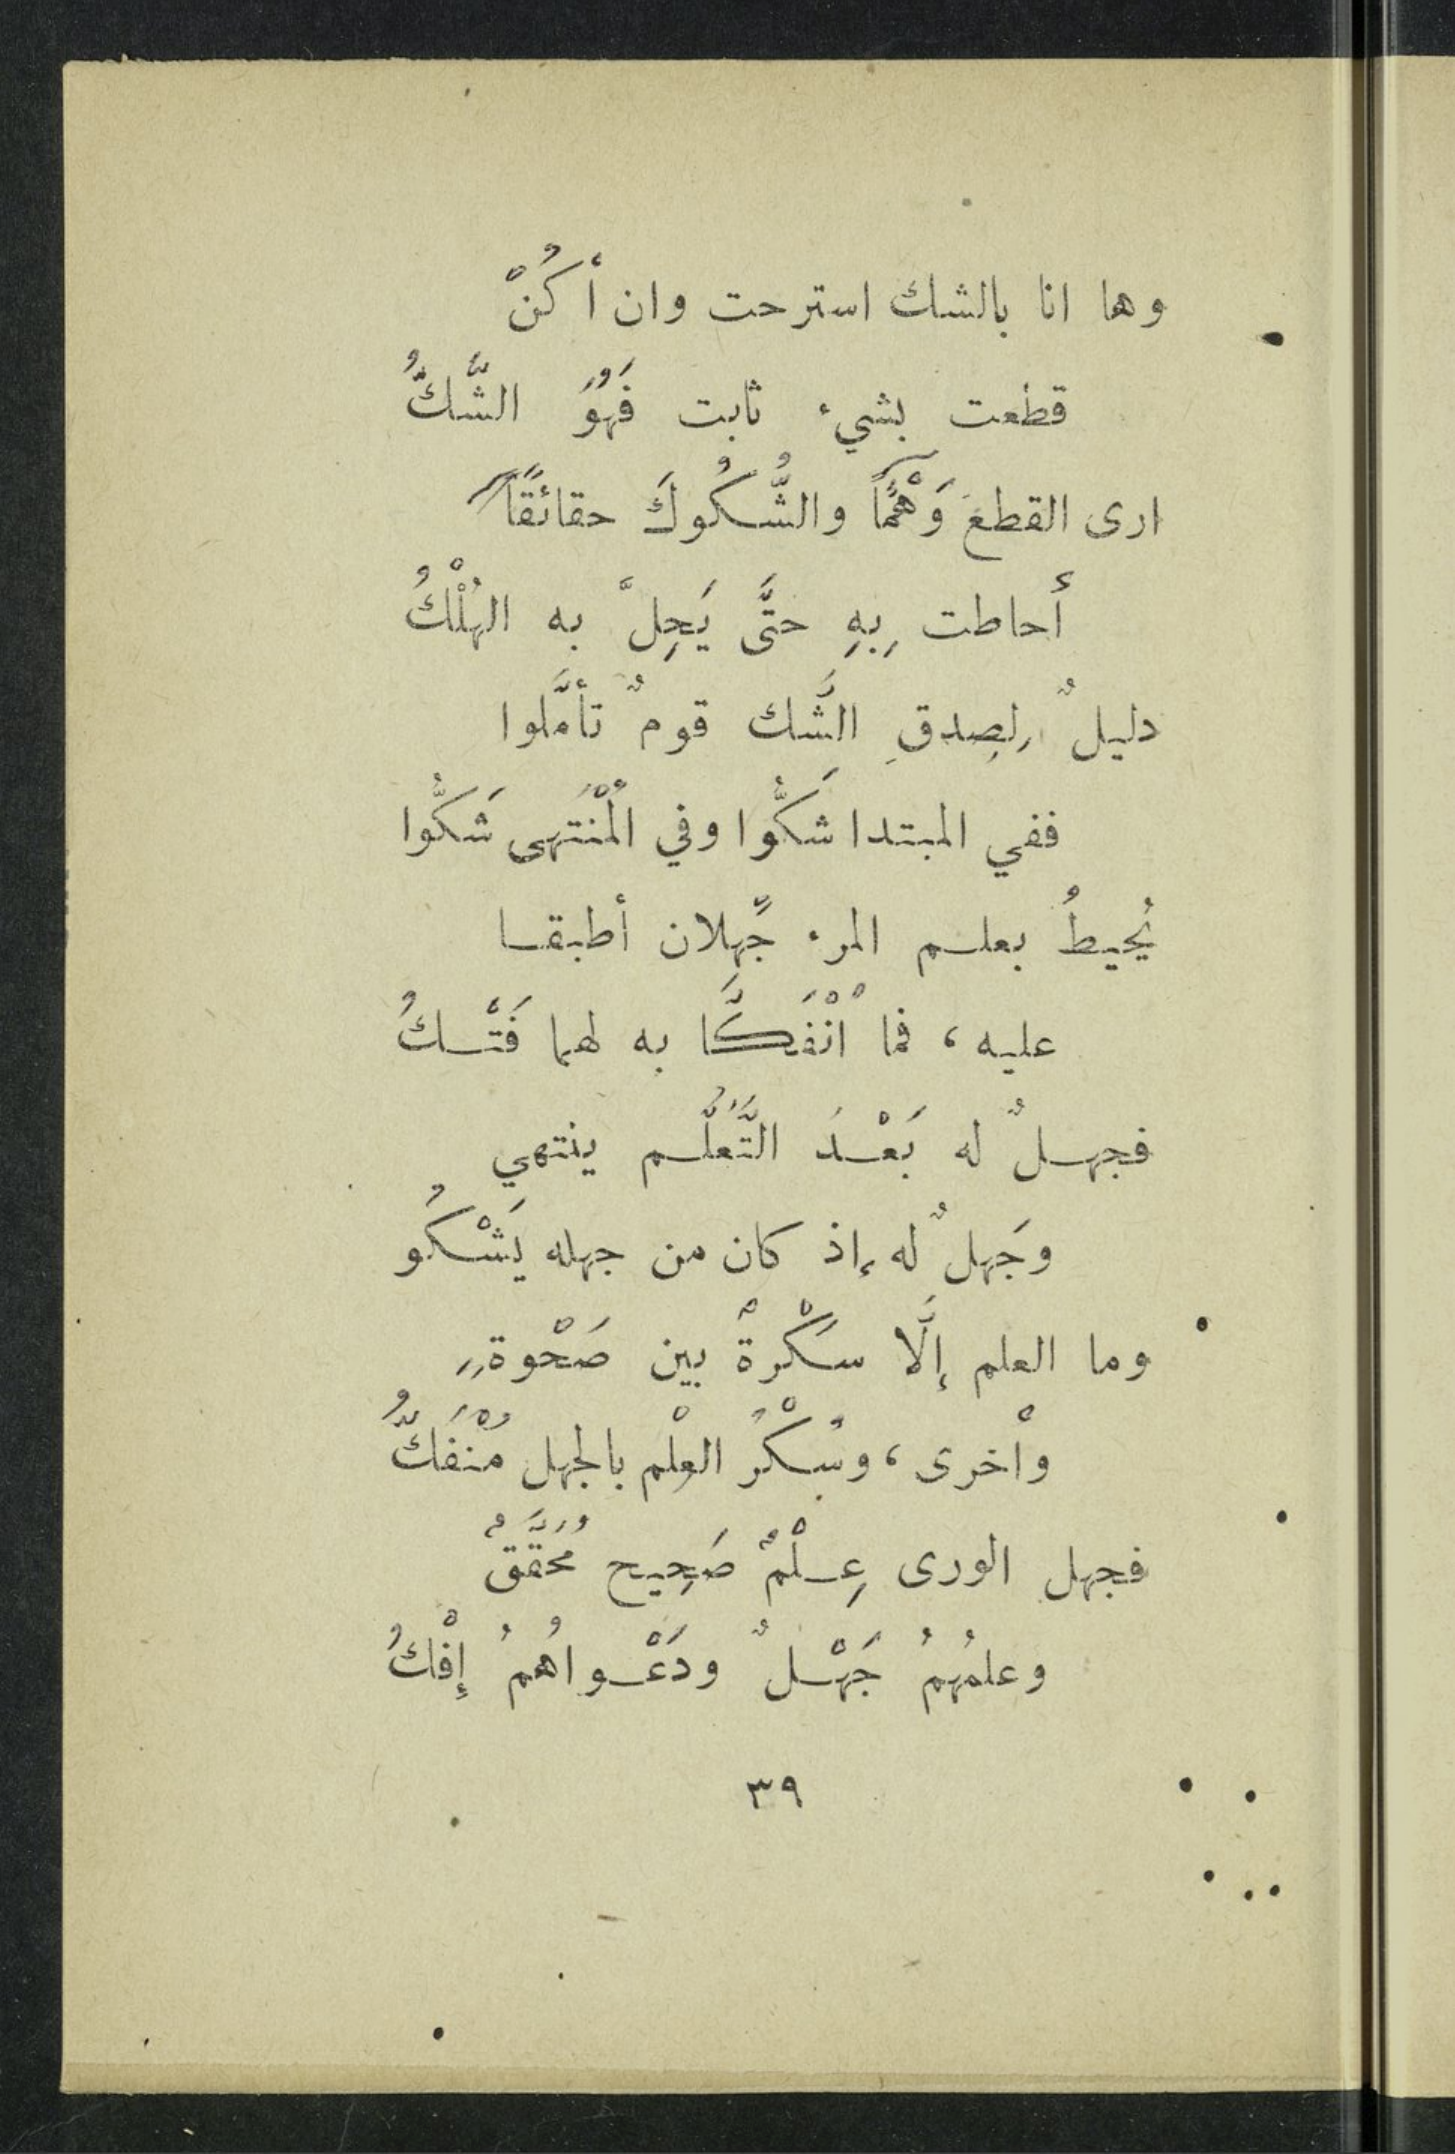 وها انا بالشك استرحت وان أكُنْ
قطعت بشيء ثابت فَهُوَ الشَّكُّ
ارى القطعَ وَهْمًا والشُّكُوكَ حقائقًا
أحاطت بِهِ حتَّى يَحِلَّ به الهُلْكُ
دليلٌ لِصِدقِ الشَّك قومٌ تأمَّلوا
ففي المبتدا شَكُّوا وفي المُنْتَهى شَكُّوا
يُحيطُ بعلم المرء جَهلان أطبقا
عليه، فما انْفَكَّا به لهما فَتْكُ
فجهلٌ له بَعْدَ التَّعَلُّم ينتهي
وَجَهلٌ له إذ كان من جهله يَشْكُو
وما العلم إلَّا سَكْرةٌ بين صَحْوةٍ
واْخرى، وسُكْرُ العِلْم بالجهل مُنْفَكُّ
فجهل الورى عِلْمٌ صَحِيح مُحَقَّقٌ
وعلمُهمُ جَهْلٌ ودَعْواهُمُ إِفْكُ
٣٩